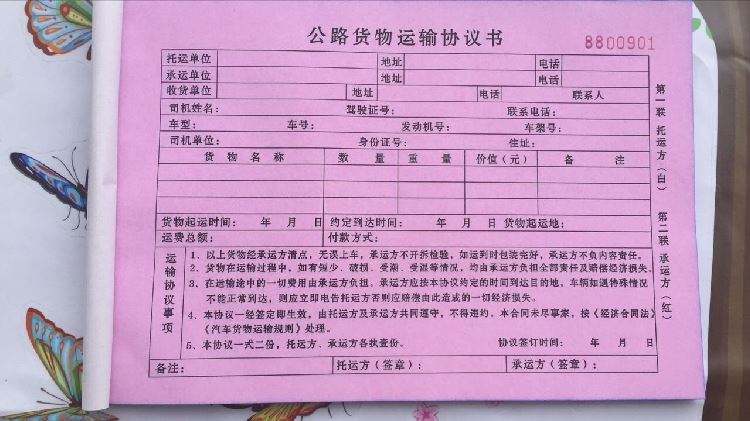 公路货物运输协议书
8800901
托运单位 地址 电话
承运单位 地址 电话
收货单位 地址 电话 联系人
司机姓名： 驾驶证号： 联系电话：
车型： 车号： 发动机号： 车架号：
司机单位： 身份证号： 住址：
货物名称 数量 重量 价值（元） 备注
货物起运时间： 年 月 日 约定到达时间： 年 月 日 货物起运地：
运费总额： 付款方式：
运输协议事项
1、以上货物经承运方清点，无误上车，承运方不开拆检验，如运到时包装完好，承运方不负内容责任。
2、货物在运输过程中，如有短少、破损、受潮、受湿等情况，均由承运方负担全部责任及赔偿经济损失。
3、在运输途中的一切费用由承运方负担、承运方应按本协议约定的时间到达目的地，车辆如遇特殊情况
不能正常到达，则应立即电告托运方否则应赔偿由此造成的一切经济损失。
4、本协议一经签定即生效，由托运方及承运方共同遵守，不得违约。本合同未尽事宜，按《经济合同法》
《汽车货物运输规则》处理。
5、本协议一式二份，托运方、承运方各执壹份。 协议签订时间： 年 月 日
备注： 托运方（签章）： 承运方（签章）：
第一联 托运方（白）
第二联 承运方（红）